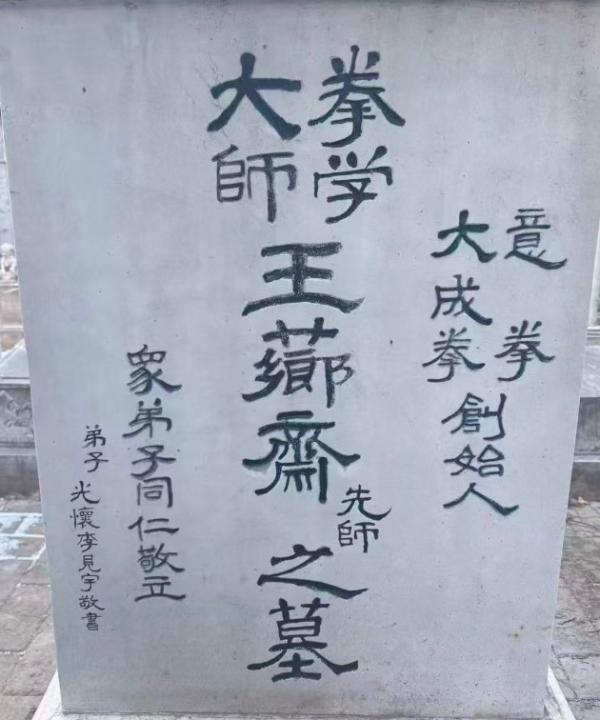 意拳
大成拳
創始人
拳学
大師
王薌齋
先師
之墓
衆弟子同仁敬立
弟子光懷李見宇敬書